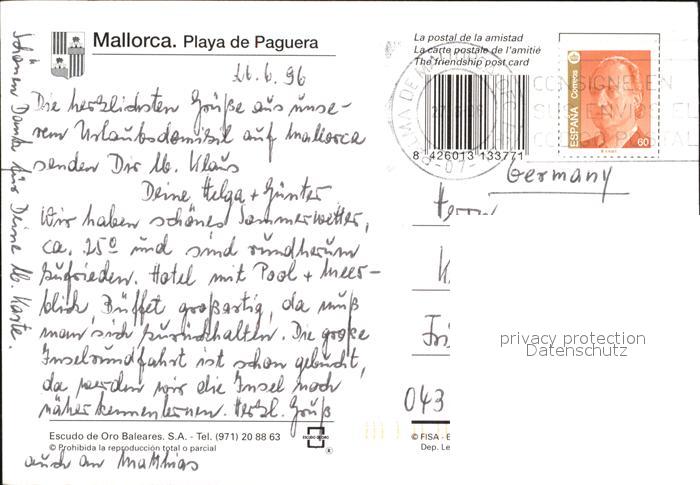 Mallorca. Playa de Paguera
26.6.96
Die herzlichsten Grüße aus unse-
rem Urlaubsdomizil auf Mallorca
senden Dir lb. Klaus
Deine Helga + Günter
Wir haben schönes Sommerwetter,
ca. 25° und sind rundherum
zufrieden. Hotel mit Pool + Meer-
blick, Büffet großartig, da muß
man sich zurückhalten. Die große
Inselrundfahrt ist schon gebucht,
da werden wir die Insel noch
näher kennenlernen. Herzl. Gruß
auch an Matthias
Schönen Dank für Deine lb. Karte.
Escudo de Oro Baleares. S.A. - Tel. (971) 20 88 63
© Prohibida la reproducción total o parcial
ESCUDO DE ORO
®
La postal de la amistad
La carte postale de l'amitié
The friendship post card
8 426013 133771
PALMA DE
CONSIGNE EN
SU
CO POSTAL
ESPAÑA Correos
60
Germany
Herrn
K
Fri
043
privacy protection
Datenschutz
© FISA - E
Dep. Le